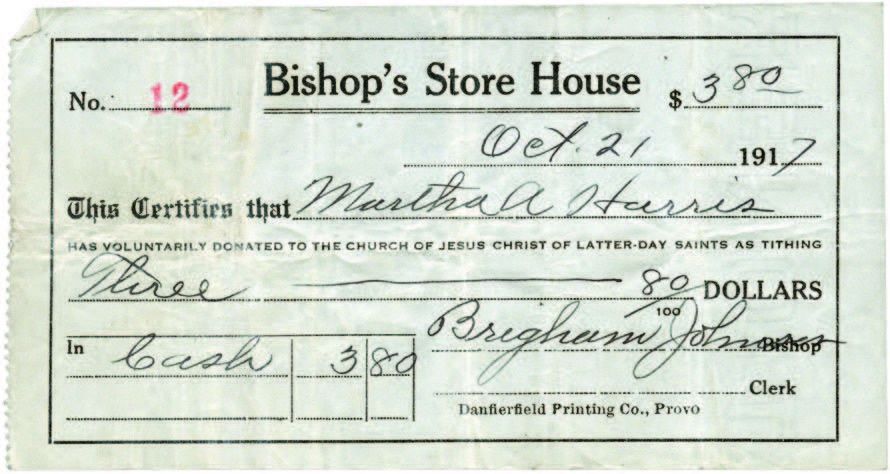 Bishop's Store House
No. 12 $ 3 80
Oct. 21 1917
This Certifies that Martha A Harris
HAS VOLUNTARILY DONATED TO THE CHURCH OF JESUS CHRIST OF LATTER-DAY SAINTS AS TITHING
Three 80/100 DOLLARS
In Cash 3 80 Brigham Johnson Bishop
Clerk
Danfierfield Printing Co., Provo